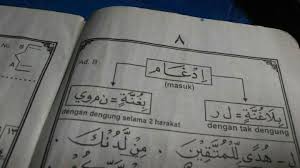 ٨
Ad. B
اِدْغَامْ
(masuk)
بِلَاغُنَّةٍ = ل ر
بِغُنَّةٍ = ن م و ي
dengan tak dengung
dengan dengung selama 2 harakat
هُدًى لِّلْمُتَّقِيْنَ
مِن لَّدُنْكَ